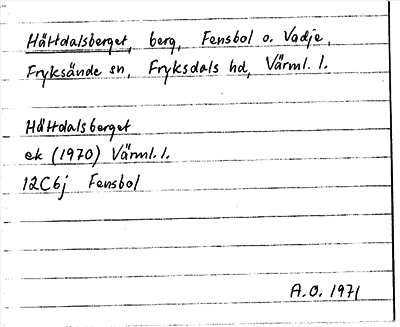 Håttdalsberget, berg, Fensbol o. Vadje,
Fryksände sn, Fryksdals hd, Värml. l.
Håttdalsberget
ek (1970) Värml. l.
12C6j Fensbol
A.O. 1971